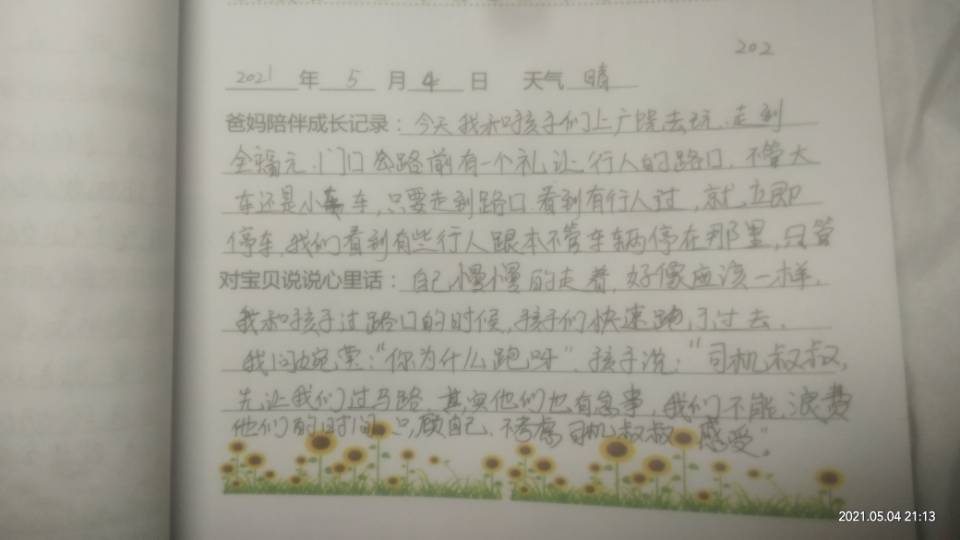 202
2021 年 5 月 4 日 天气 晴
爸妈陪伴成长记录：今天我和孩子们上广场去玩，走到
全福元门口公路前有一个礼让行人的路口，不管大
车还是小车，只要走到路口看到有行人过，就立即
停车，我们看到有些行人跟本不管车辆停在那里，只管
对宝贝说说心里话：自己慢慢的走着，好像应该一样，
我和孩子过路口的时候，孩子们快速跑了过去，
我问："你为什么跑呀"，孩子说："司机叔叔，
先让我们过马路，其实他们也有急事，我们不能浪费
他们的时间，只顾自己，不考虑司机叔叔感受"。
2021.05.04 21:13